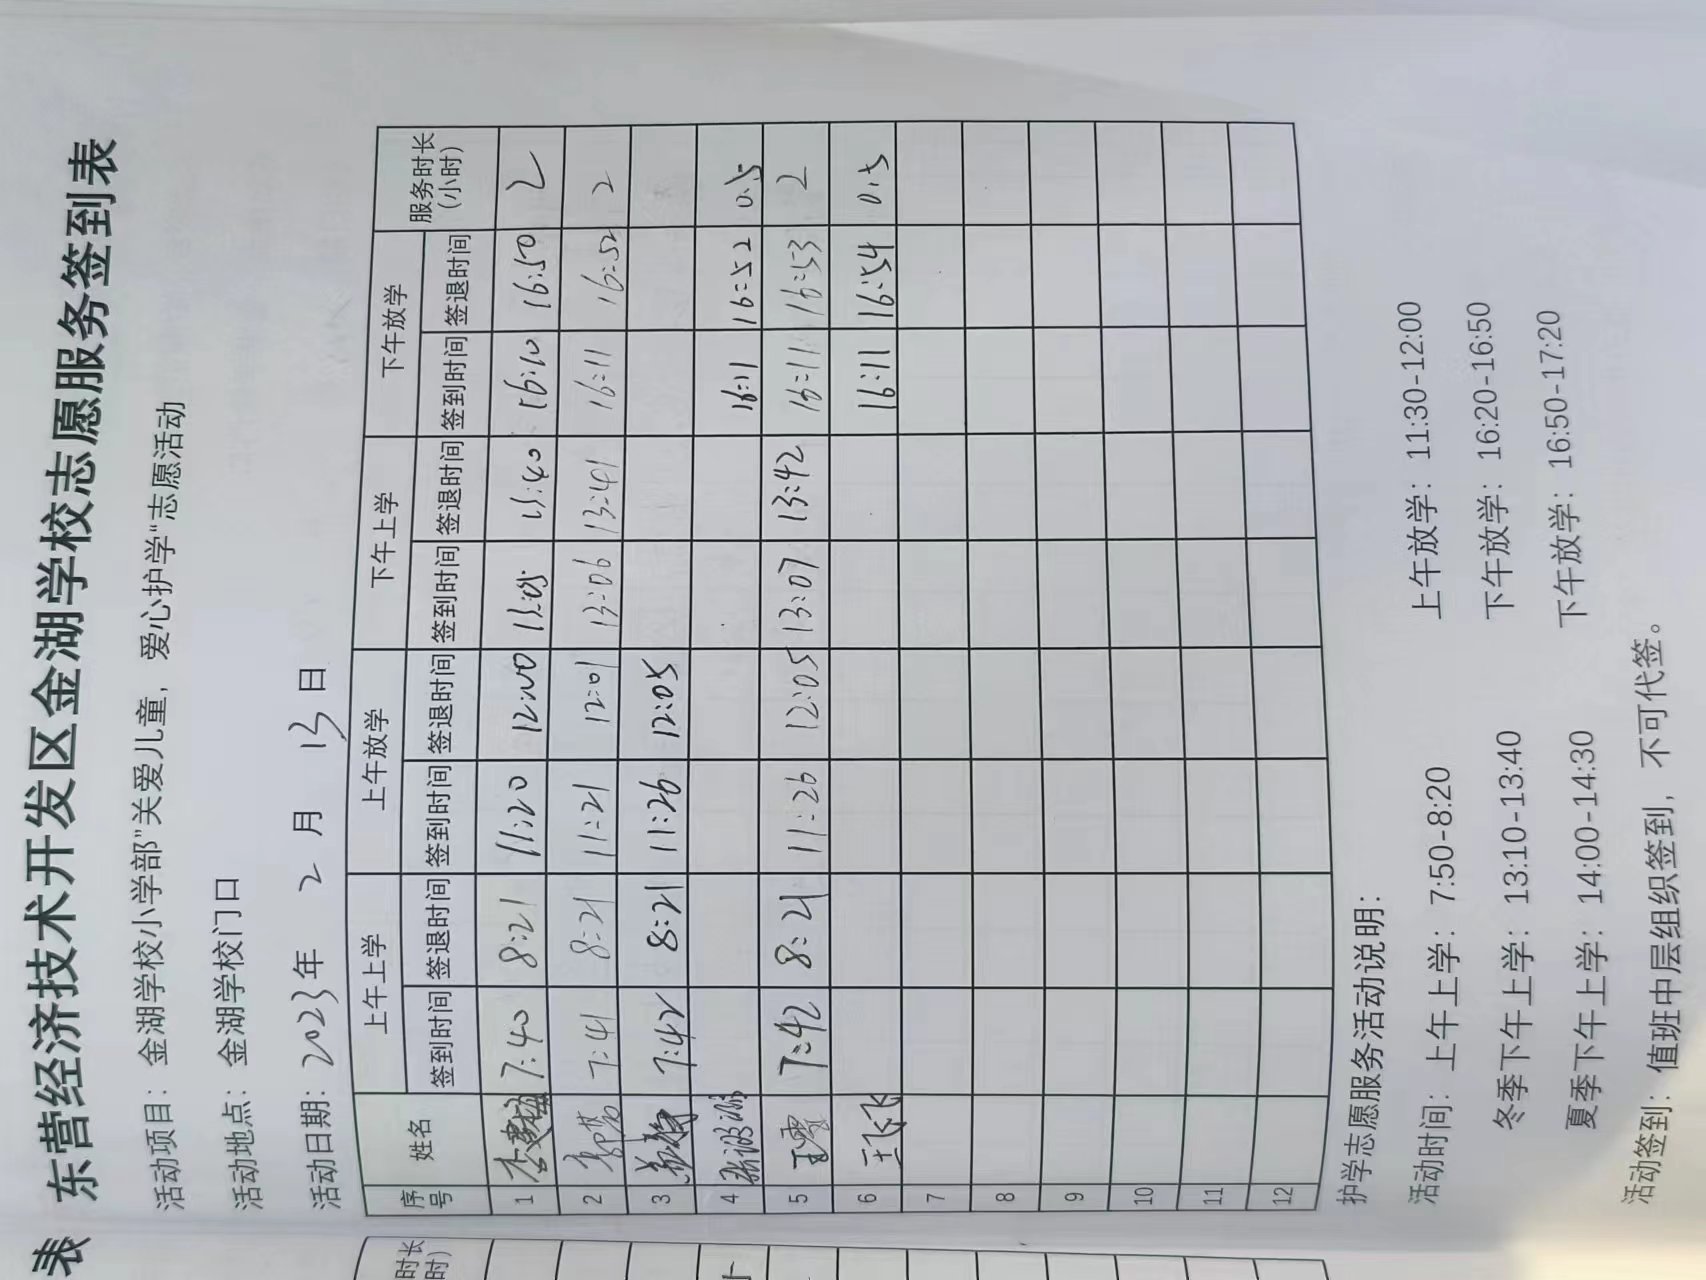 东营经济技术开发区金湖学校志愿服务签到表
活动项目：金湖学校小学部"关爱儿童，爱心护学"志愿活动
活动地点：金湖学校门口
活动日期：2023年 2 月 13 日
序号 姓名 上午上学 上午放学 下午上学 下午放学 服务时长(小时)
签到时间 签退时间 签到时间 签退时间 签到时间 签退时间 签到时间 签退时间
1 7:40 8:21 11:20 12:00 13:05 13:40 16:10 16:50 2
2 7:41 8:21 11:21 12:01 13:06 13:41 16:11 16:52 2
3 7:42 8:21 11:26 12:05
4 16:11 16:52 0.5
5 7:42 8:21 11:26 12:05 13:07 13:42 16:11 16:53 2
6 王飞飞 16:11 16:54 0.5
7
8
9
10
11
12
护学志愿服务活动说明：
活动时间：上午上学：7:50-8:20 上午放学：11:30-12:00
冬季下午上学：13:10-13:40 下午放学：16:20-16:50
夏季下午上学：14:00-14:30 下午放学：16:50-17:20
活动签到：值班中层组织签到，不可代签。
表
时长
时)